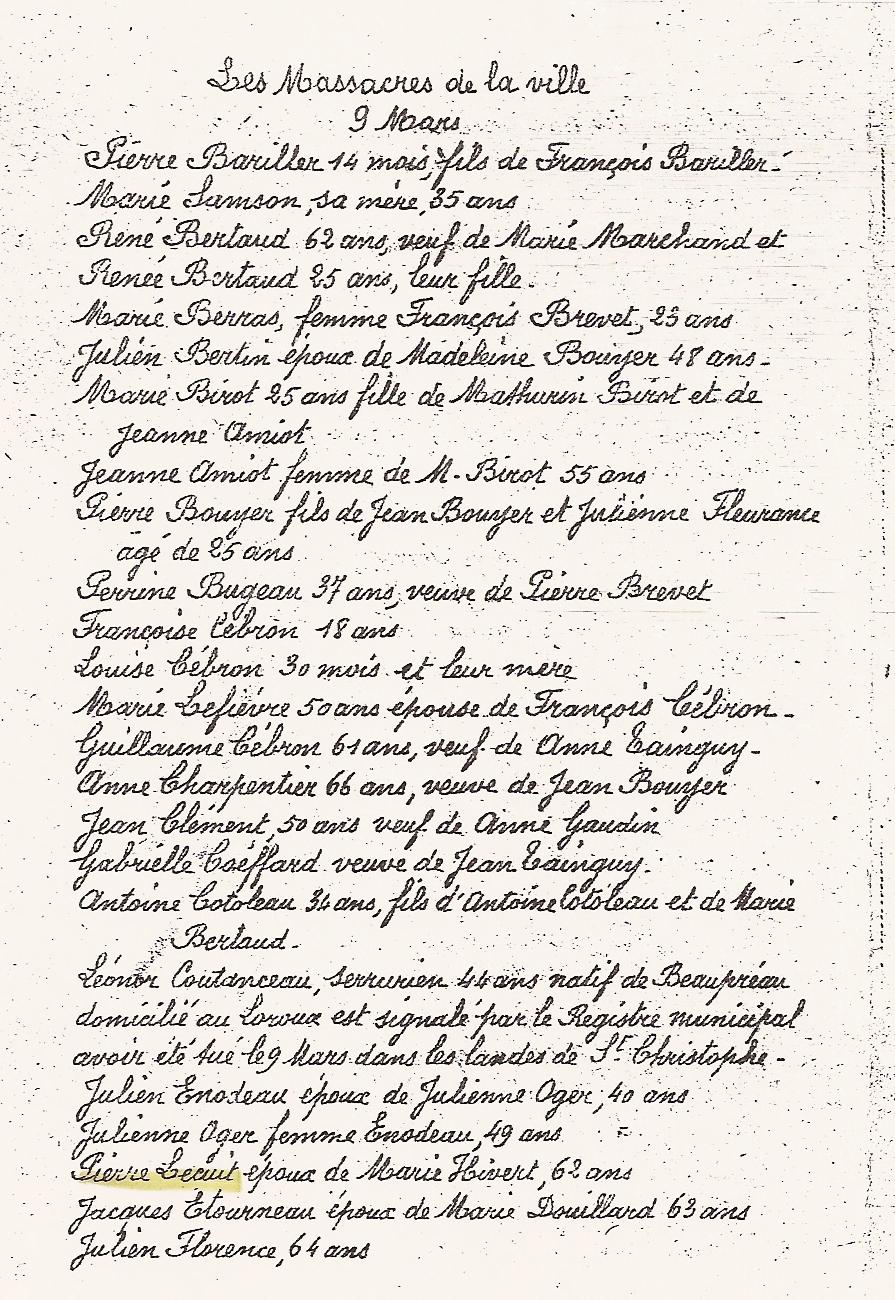 Les Massacres de la ville
9 Mars
Pierre Bariller 14 mois, fils de François Bariller.
Marie Samson, sa mère, 35 ans
René Bertaud 62 ans, veuf de Marie Marchand et
Renée Bertaud 25 ans, leur fille.
Marie Berras, femme François Brevet, 23 ans
Julien Bertin époux de Madeleine Bouyer 48 ans.
Marie Birot 25 ans fille de Mathurin Birot et de
Jeanne Amiot
Jeanne Amiot femme de M. Birot 55 ans
Pierre Bouyer fils de Jean Bouyer et Julienne Fleurance
âgé de 25 ans
Perrine Bugeau 37 ans, veuve de Pierre Brevet
Françoise Cébron 18 ans
Louise Cébron 30 mois et leur mère
Marie Lefièvre 50 ans épouse de François Cébron.
Guillaume Cébron 61 ans, veuf de Anne Tainguy.
Anne Charpentier 66 ans, veuve de Jean Bouyer
Jean Clément, 50 ans veuf de Anne Gaudin
Gabrielle Coëffard veuve de Jean Tainguy.
Antoine Cotoleau 34 ans, fils d'Antoine Cotoleau et de Marie
Bertaud.
Léonor Coutanceau, serrurien 44 ans natif de Beaupréau
domicilié au Loroux est signalé par le Registre municipal
avoir été tué le 9 Mars dans les landes de St Christophe.
Julien Enodeau époux de Julienne Oger, 40 ans
Julienne Oger femme Enodeau, 49 ans
Pierre Lecuit époux de Marie Hivert, 62 ans
Jacques Etourneau époux de Marie Douillard 63 ans
Julien Florence, 64 ans